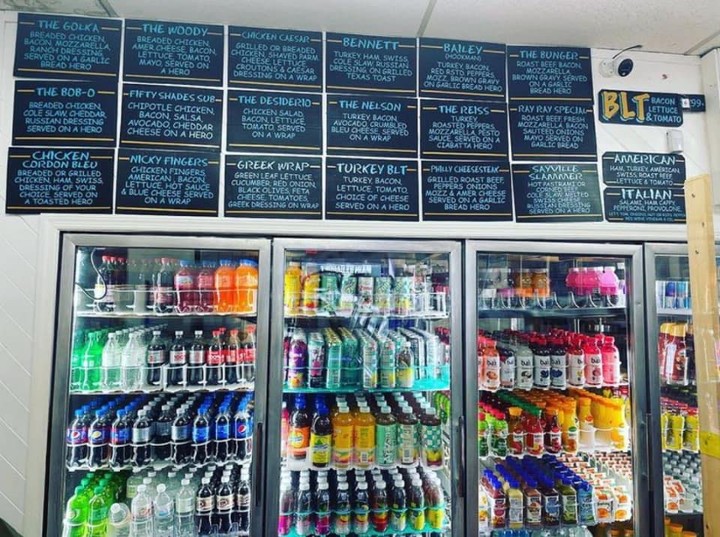 THE GOLKA
BREADED CHICKEN,
BACON, MOZZARELLA,
RANCH DRESSING
ON A GARLIC
BREAD HERO
THE WOODY
BREADED CHICKEN,
AMER.CHEESE, BACON,
LETTUCE, TOMATO,
MAYO, SERVED ON
A HERO
CHICKEN CAESAR
GRILLED OR BREADED
CHICKEN, SHAVED PARM.
CHEESE, LETTUCE,
CROUTONS & CAESAR
DRESSING ON A WRAP
BENNETT
TURKEY, HAM, SWISS,
COLE SLAW, RUSSIAN
DRESSING ON GRILLED
TEXAS TOAST
BAILEY
TURKEY, BACON,
RED RSTD PEPPERS,
MOZZ, BROWN GRAVY
ON GARLIC BREAD
THE BUNGER
ROAST BEEF, BACON,
MOZZARELLA,
BROWN GRAVY SERVED
ON A GARLIC
BREAD HERO
THE BOB-O
BREADED CHICKEN,
COLE SLAW, CHEDDAR,
RUSSIAN DRESSING
ON A HERO
FIFTY SHADES SUB
CHIPOTLE CHICKEN,
BACON, SALSA,
AVOCADO, CHEDDAR
CHEESE ON A HERO
THE DESIDERIO
CHICKEN SALAD,
BACON, LETTUCE
TOMATO, SERVED
ON A WRAP
THE NELSON
TURKEY, BACON,
AVOCADO, CRUMBLED
BLEU CHEESE, SERVED
ON A WRAP
THE REISS
TURKEY,
ROASTED PEPPERS,
MOZZARELLA, PESTO
SAUCE, SERVED ON A
CIABATTA HERO
RAY RAY SPECIAL
ROAST BEEF, FRESH
MOZZARELLA, BACON,
SAUTEED ONIONS
MAYO SERVED
ON A WRAP
BLT
BACON
LETTUCE
& TOMATO
CHICKEN
CORDON BLEU
BREADED OR GRILLED
CHICKEN, HAM, SWISS,
DRESSING OF YOUR
CHOICE. SERVED ON
A TOASTED HERO
NICKY FINGERS
CHICKEN FINGERS,
AMERICAN, BACON,
LETTUCE, HOT SAUCE
& BLUE CHEESE SERVED
ON A WRAP
GREEK WRAP
GREEN LEAF LETTUCE
CUCUMBER, RED ONION,
BLACK OLIVES, FETA
CHEESE, TOMATOES,
GREEK DRESSING ON WRAP
TURKEY BLT
TURKEY, BACON,
LETTUCE, TOMATO,
CHOICE OF CHEESE
SERVED ON A WRAP
PHILLY CHEESESTEAK
GRILLED ROAST BEEF,
PEPPERS, ONIONS
MOZZ & AMER CHEESE
SERVED ON A GARLIC
BREAD HERO
SAYVILLE
SLAMMER
HOT PASTRAMI OR
CORNED BEEF
COLE SLAW
SWISS CHEESE
RUSSIAN DRESSING
SERVED ON A HERO
AMERICAN
HAM, TURKEY, AMERICAN
SWISS, ROAST BEEF
LETTUCE & TOMATO
ITALIAN
SALAMI, HAM CAPPY
PEPPERONI, PROVOLONE,